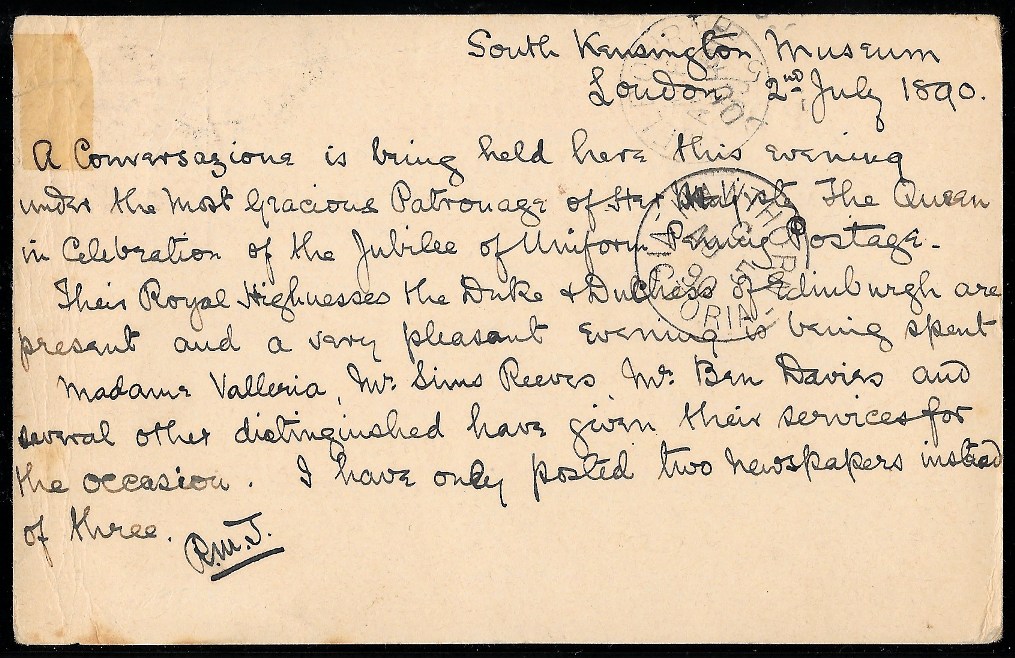 South Kensington Museum
London 2nd July 1890.
A Conversazione is being held here this evening
under the Most Gracious Patronage of Her Majesty The Queen
in Celebration of the Jubilee of Uniform Penny Postage.
Their Royal Highnesses the Duke & Duchess of Edinburgh are
present and a very pleasant evening is being spent
Madame Valleria, Mr. Sims Reeves Mr. Ben Davies and
several other distinguished have given their services for
the occasion. I have only posted two newspapers instead
of three.
R.M.J.
HAWTHORN
VICTORIA
90